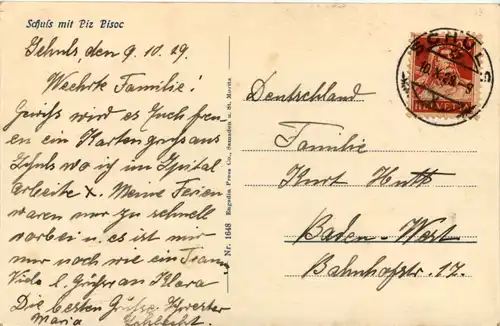 Schuls mit Piz Pisoc
Schuls, den 9. 10. 29.
Weehrte Familie!
Gewiss wird es Euch freu-
en ein Kartengruss aus
Schuls wo ich im Spital
arbeite x. Meine Ferien
waren nur zu schnell
vorbei u. es ist mir
nur noch wie ein Traum
Viele l. Grüsse an Klara
Die besten Grüsse Schwester
Maria
Nr. 1648 Engadin Press Co., Samaden u. St. Moritz.
SCHULS
HELVETIA
Deutschland
Familie
Kurt Huth
Baden-West
Bahnhofstr. 17.